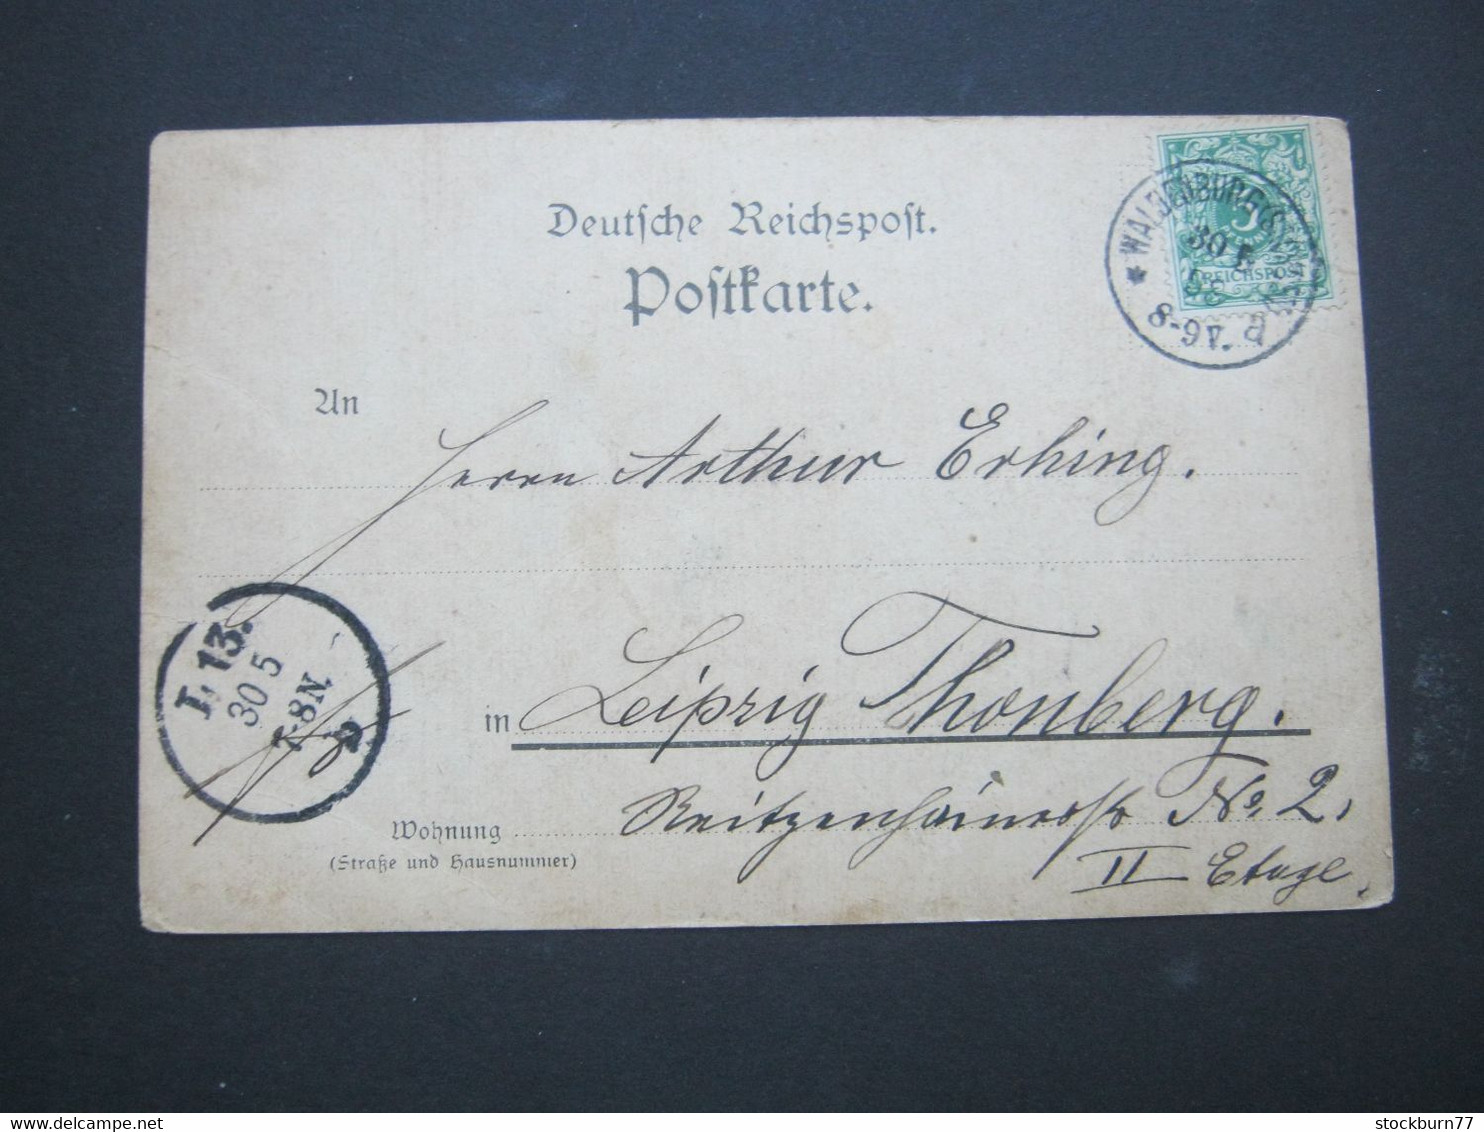 Deutsche Reichspost.
Postkarte.
WALDENBURG (SACHSEN)
30 5
8-9V.
REICHSPOST
5
An
Herrn Arthur Erhing.
L. 13.
30 5
7-8N.
in Leipzig Thonberg.
Wohnung Reitzenhainerstr No. 2,
(Straße und Hausnummer)
II Etage.
stockburn77